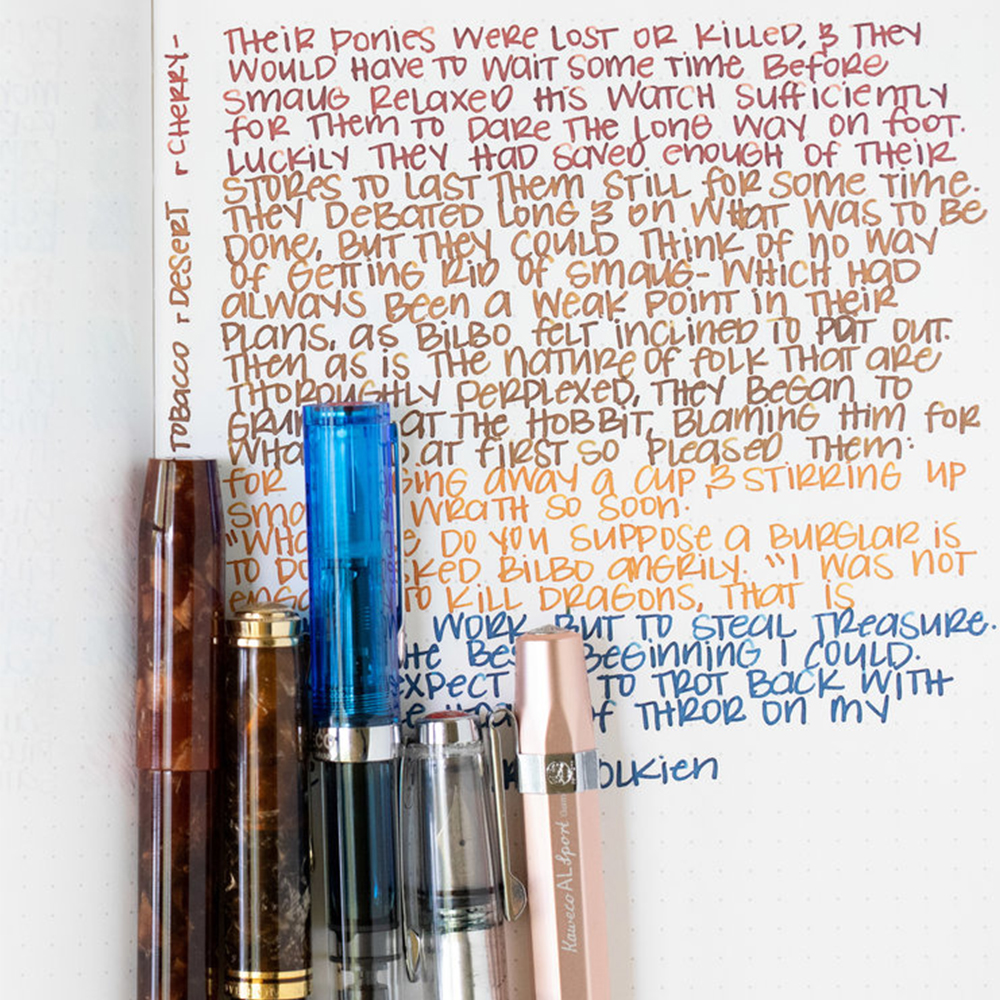 THEIR PONIES WERE LOST OR KILLED, & THEY
WOULD HAVE TO WAIT SOME TIME BEFORE
SMAUG RELAXED HIS WATCH SUFFICIENTLY
FOR THEM TO DARE THE LONG WAY ON FOOT.
LUCKILY THEY HAD SAVED ENOUGH OF THEIR
STORES TO LAST THEM STILL FOR SOME TIME.
THEY DEBATED LONG & ON WHAT WAS TO BE
DONE, BUT THEY COULD THINK OF NO WAY
OF GETTING RID OF SMAUG- WHICH HAD
ALWAYS BEEN A WEAK POINT IN THEIR
PLANS, AS BILBO FELT INCLINED TO POINT OUT.
THEN AS IS THE NATURE OF FOLK THAT ARE
THOROUGHLY PERPLEXED, THEY BEGAN TO
AT THE HOBBIT, BLAMING HIM FOR
AT FIRST SO PLEASED THEM:
FOR AWAY A CUP & STIRRING UP
WRATH SO SOON.
DO YOU SUPPOSE A BURGLAR IS
TO BILBO ANGRILY. "I WAS NOT
TO KILL DRAGONS, THAT IS
WORK, BUT TO STEAL TREASURE.
BEGINNING I COULD.
EXPECT TO TROT BACK WITH
OF THROR ON MY
TOBACCO r DESERT r CHERRY-
Kaweco AL Sport